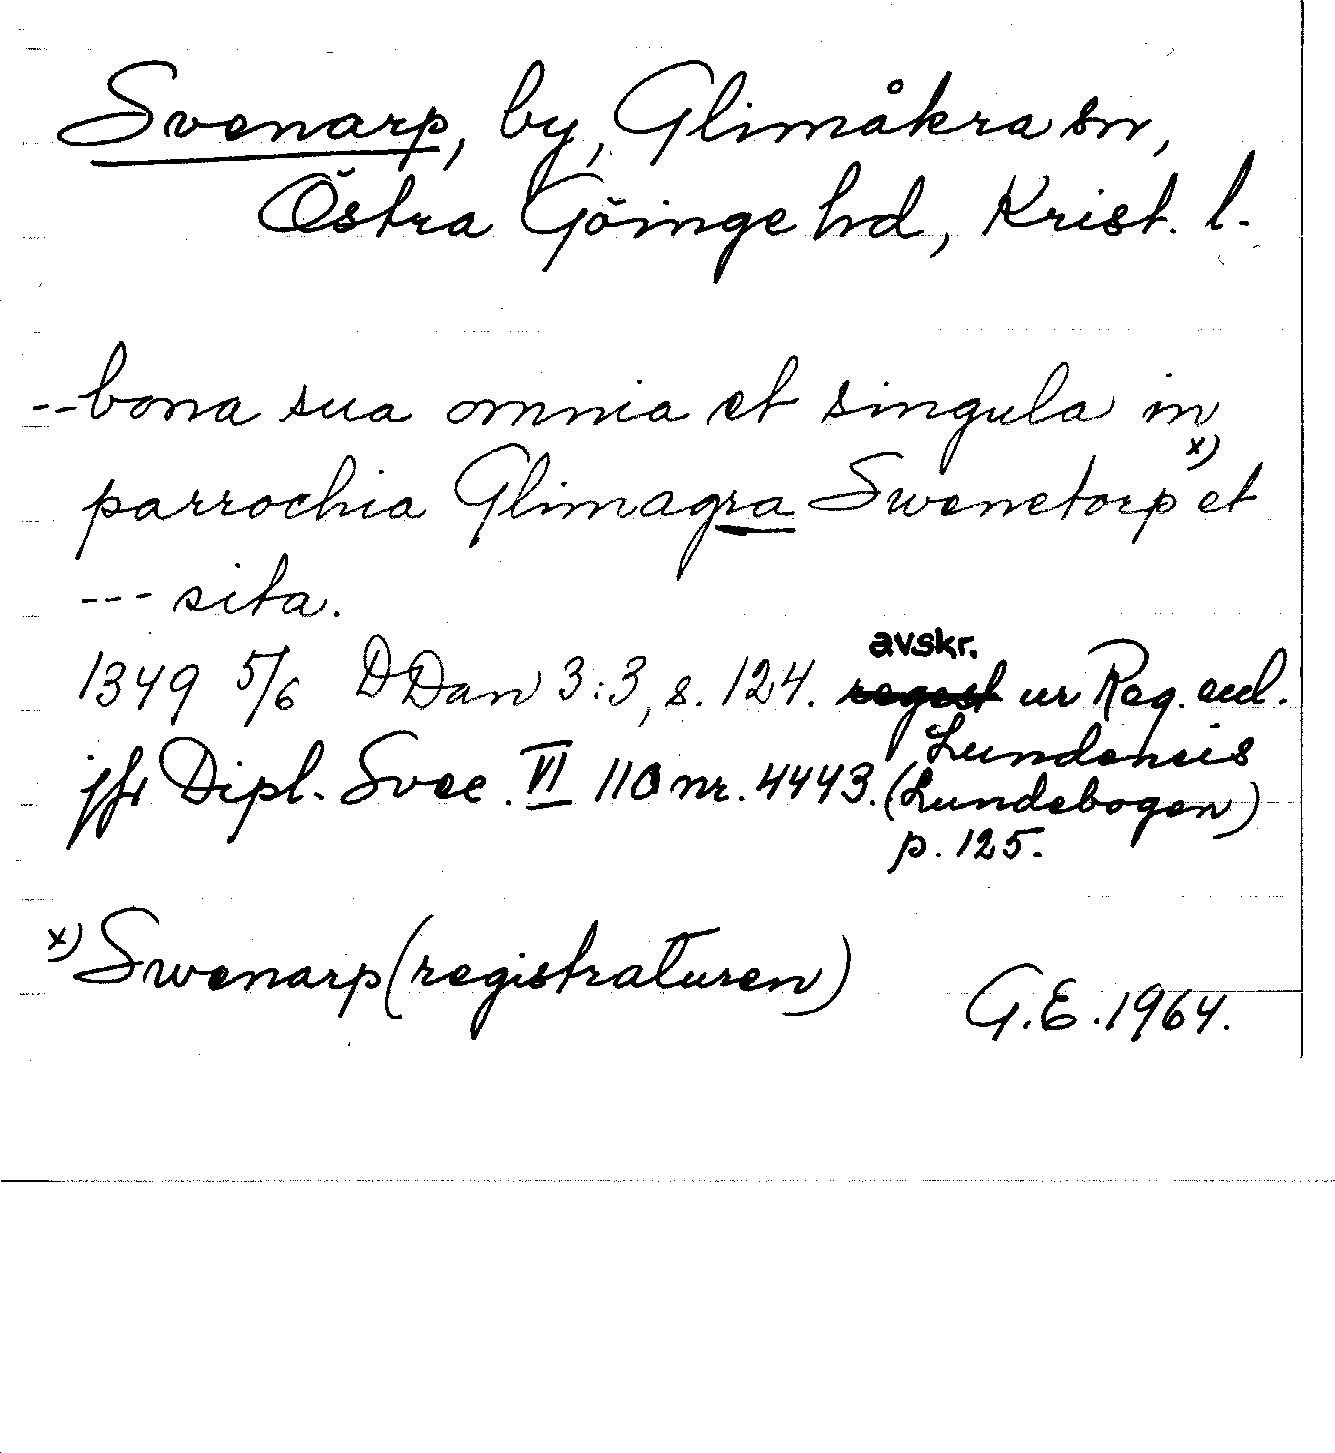 Svenarp, by, Glimåkra sn,
Östra Göinge hd, Krist. l.
--bona sua omnia et singula in
parrochia Glimagra Swenetorp x) et
--- sita.
1349 5/6 DDan 3:3, s. 124. avskr. regest ur Reg. eccl.
jfr Dipl. Svec. VI 110 nr. 4443. Lundensis
(Lundebogen)
p. 125.
x) Swenarp (registraturen)
G.E. 1964.